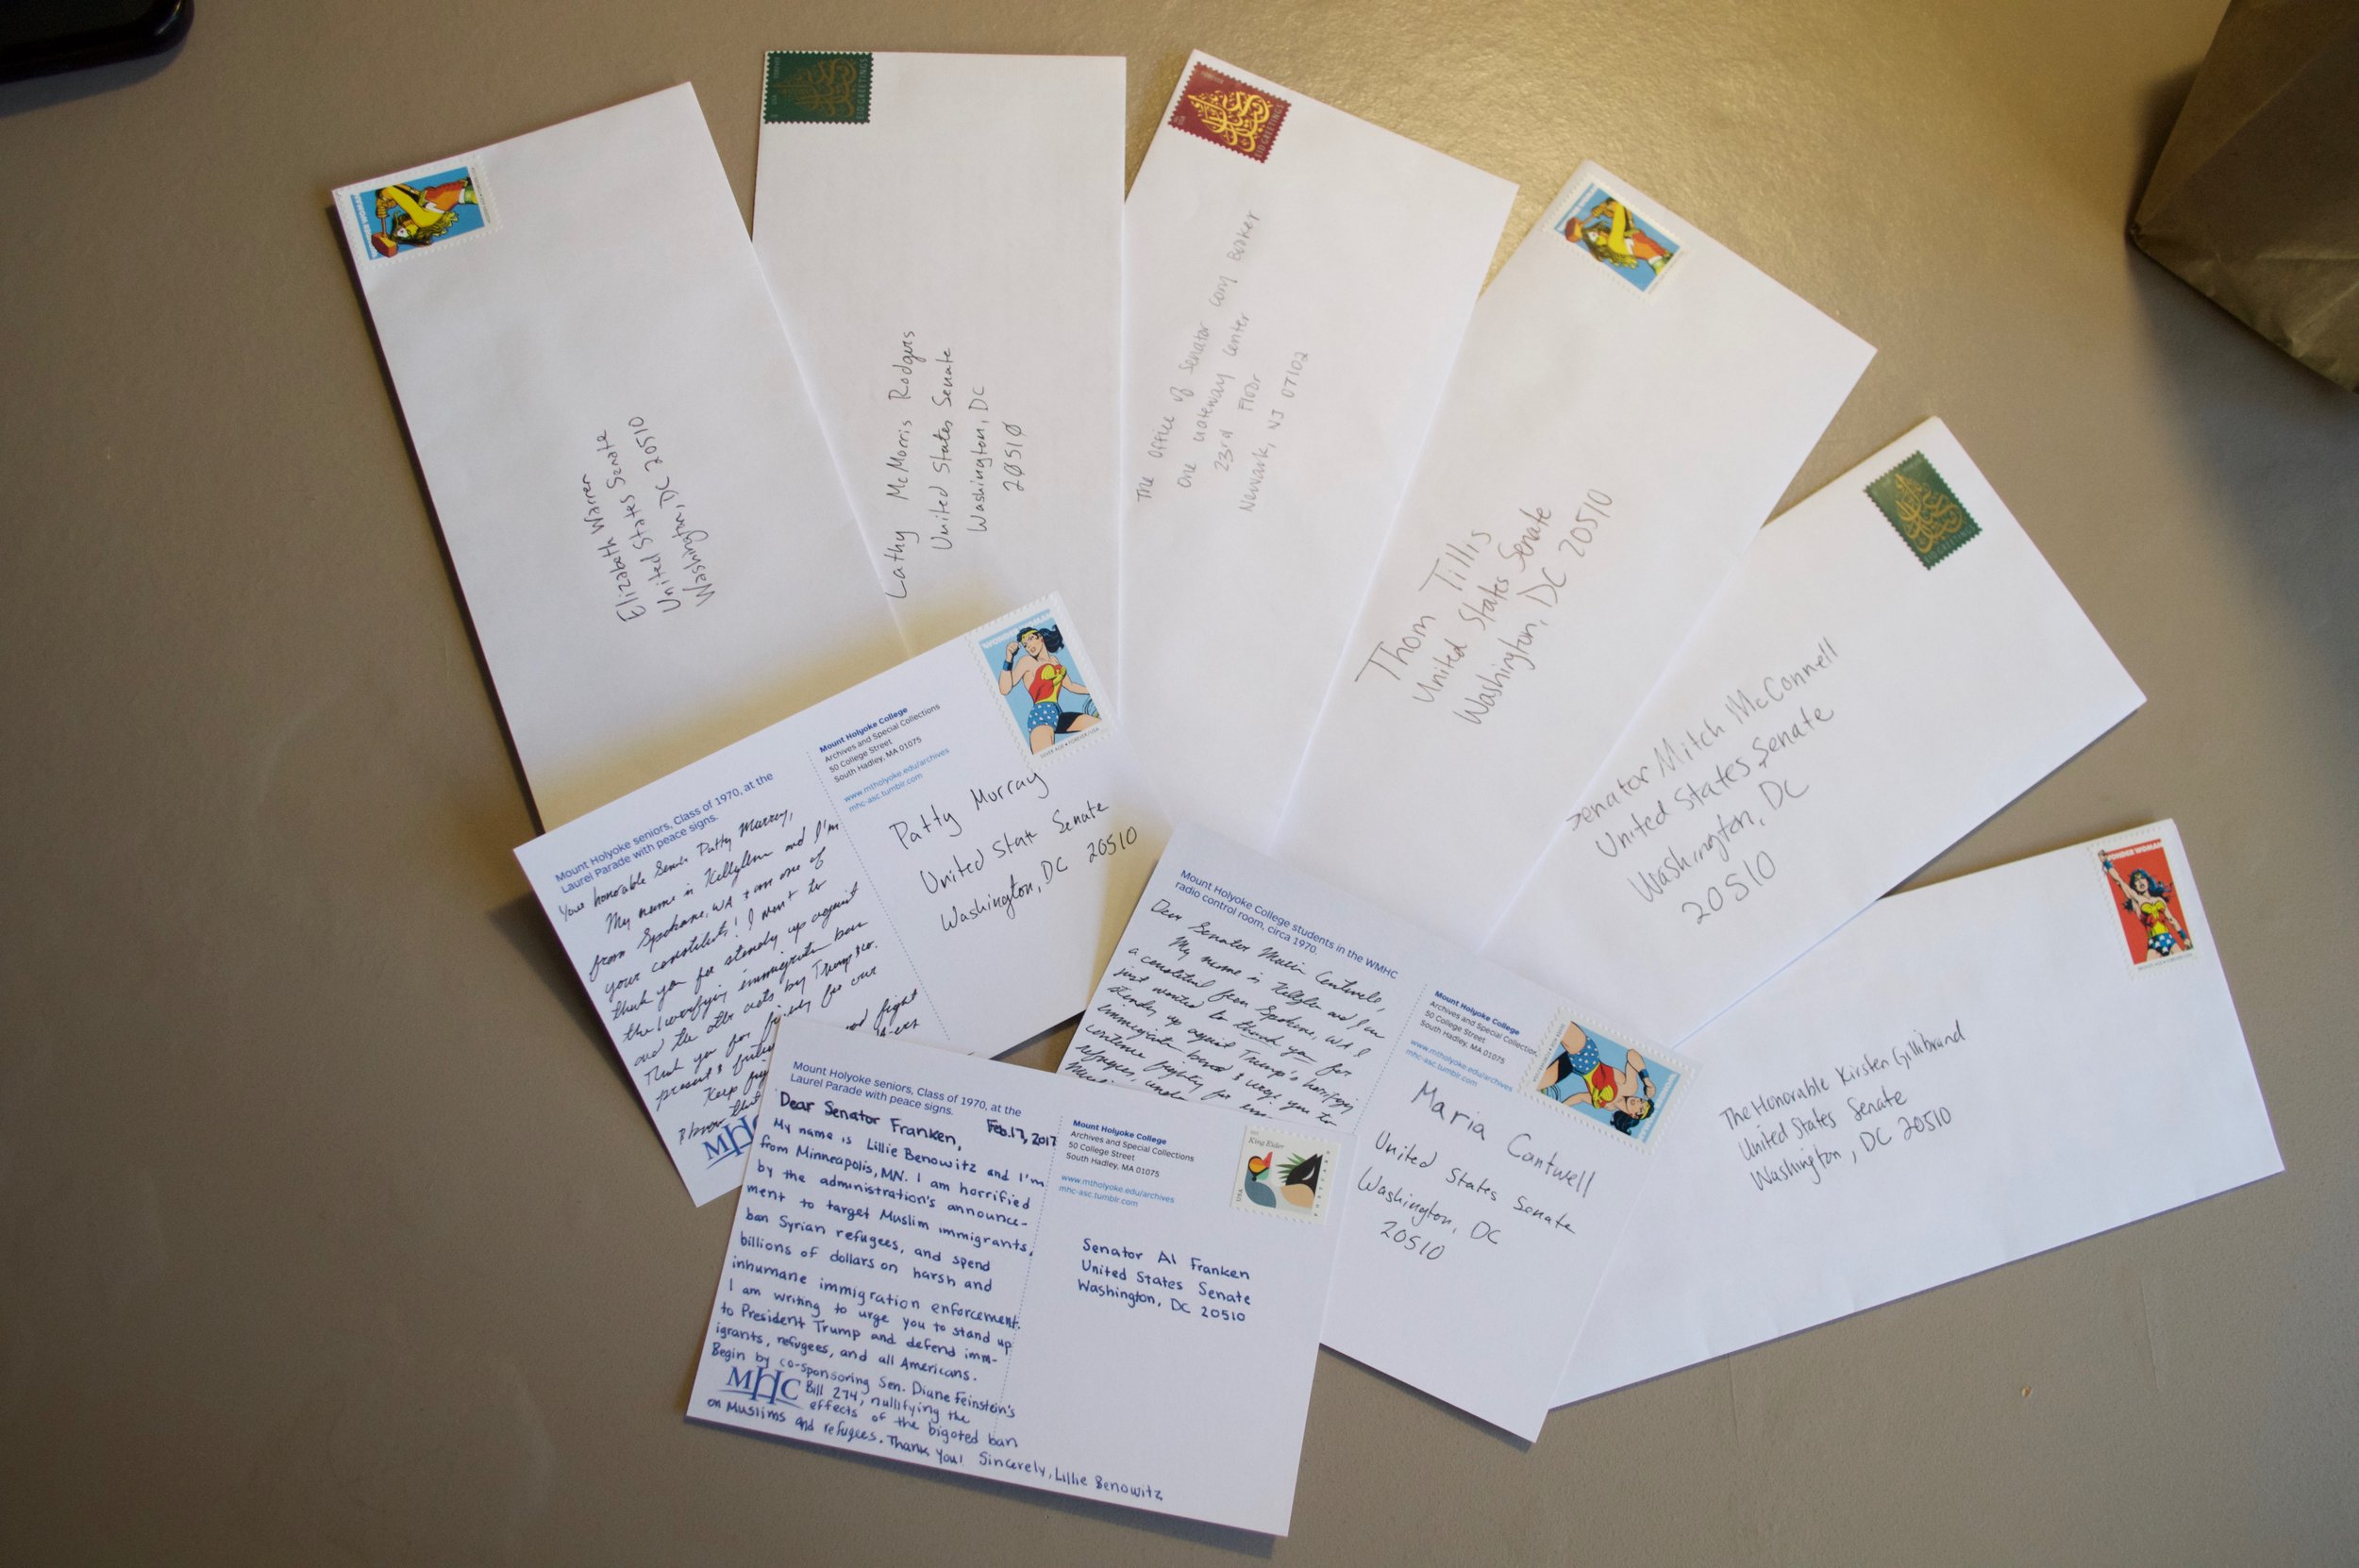 WONDER WOMAN
Elizabeth Warren
United States Senate
Washington, DC 20510
EID GREETINGS
Cathy McMorris Rodgers
United States Senate
Washington, DC
20510
EID GREETINGS
The Office of Senator Cory Booker
One Gateway Center
23rd Floor
Newark, NJ 07102
Thom Tillis
United States Senate
Washington, DC 20510
EID GREETINGS
Senator Mitch McConnell
United States Senate
Washington, DC
20510
WONDER WOMAN
The Honorable Kirsten Gillibrand
United States Senate
Washington, DC 20510
Mount Holyoke seniors, Class of 1970, at the
Laurel Parade with peace signs.
Your honorable Patty Murray,
My name is Kellyln and I'm
from Spokane, WA I am one of
your constituents! I want to
thank you for standing up against
the horrifying immigration ban
and the other acts by Trump & co.
Thank you for for our
present &
Keep
MHC
Mount Holyoke College
Archives and Special Collections
50 College Street
South Hadley, MA 01075
www.mtholyoke.edu/archives
mhc-asc.tumblr.com
WONDER WOMAN
Patty Murray
United States Senate
Washington, DC 20510
Mount Holyoke College students in the WMHC
radio control room, circa 1970.
Dear Senator Maria Cantwell,
My name is and I am
a constituent from Spokane, WA I
just wanted to thank you for
standing up against Trump's horrifying
immigration ban & urge you to
continue fighting for
refugees,
Mount Holyoke College
Archives and Special Collections
50 College Street
South Hadley, MA 01075
www.mtholyoke.edu/archives
mhc-asc.tumblr.com
Maria Cantwell
United States Senate
Washington, DC
20510
Mount Holyoke seniors, Class of 1970, at the
Laurel Parade with peace signs.
Feb. 17, 2017
Dear Senator Franken,
My name is Lillie Benowitz and I'm
from Minneapolis, MN. I am horrified
by the administration's announce-
ment to target Muslim immigrants,
ban Syrian refugees, and spend
billions of dollars on harsh and
inhumane immigration enforcement.
I am writing to urge you to stand up
to President Trump and defend imm-
igrants, refugees, and all Americans.
Begin by co-sponsoring Sen. Diane Feinstein's
Bill 274, nullifying the
effects of the bigoted ban
on Muslims and refugees. Thank you! Sincerely, Lillie Benowitz
MHC
Mount Holyoke College
Archives and Special Collections
50 College Street
South Hadley, MA 01075
www.mtholyoke.edu/archives
mhc-asc.tumblr.com
King Eider
USA
Senator Al Franken
United States Senate
Washington, DC 20510